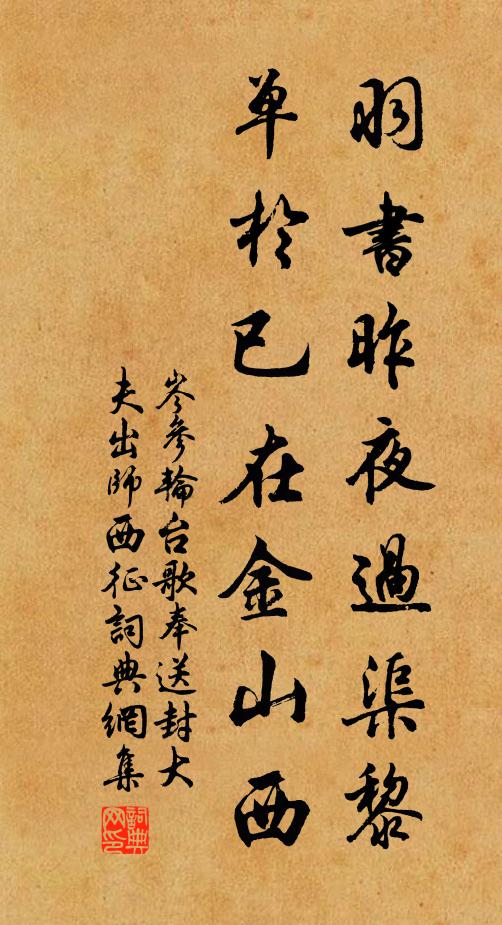 羽書昨夜過渠黎
單於已在金山西
岑參輪台歌奉送封大
夫出師西征詞典網集
詞典
网印